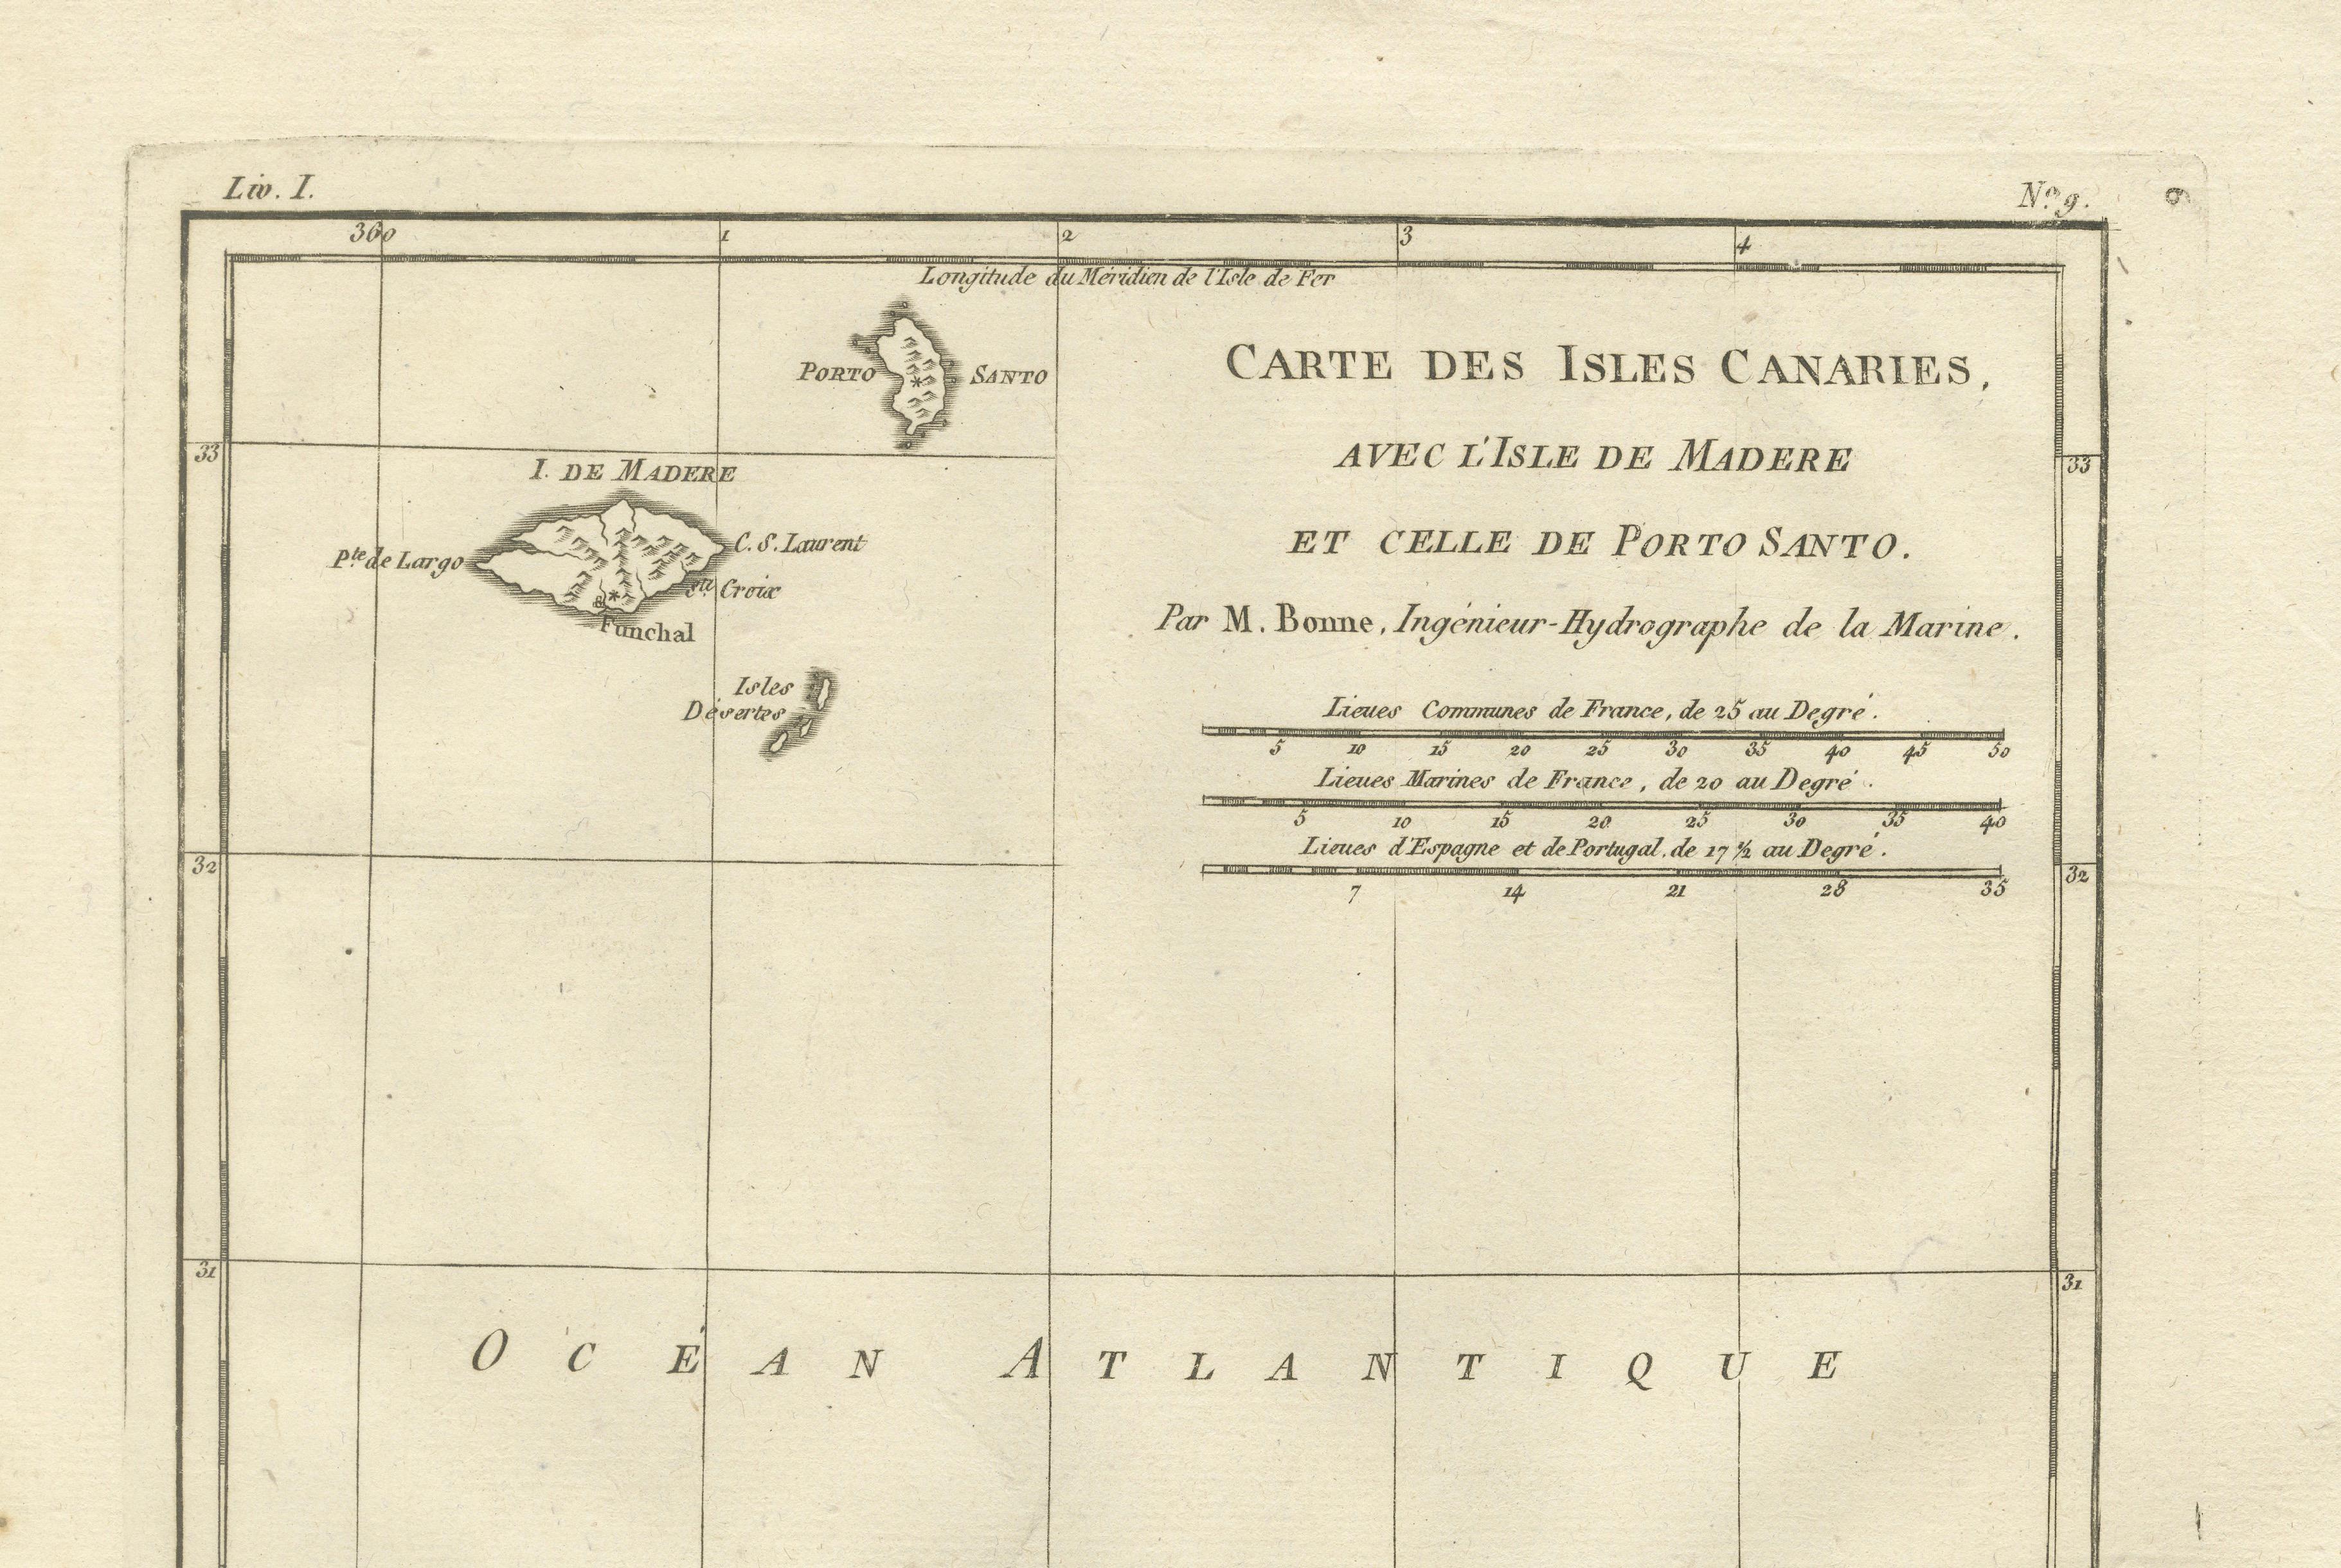 Liv. I.
N.º 9.
9
360 1 2 3 4
Longitude du Méridien de l'Isle de Fer
CARTE DES ISLES CANARIES,
AVEC L'ISLE DE MADERE
ET CELLE DE PORTO SANTO.
Par M. Bonne, Ingénieur-Hydrographe de la Marine.
Lieues Communes de France, de 25 au Degré.
5 10 15 20 25 30 35 40 45 50
Lieues Marines de France, de 20 au Degré.
5 10 15 20 25 30 35 40
Lieues d'Espagne et de Portugal, de 17 ½ au Degré.
7 14 21 28 35
PORTO SANTO
33
33
I. DE MADERE
C. S. Laurent
P.te de Largo
S.ta Croix
Funchal
Isles
Désertes
32
32
31
31
OCÉAN ATLANTIQUE